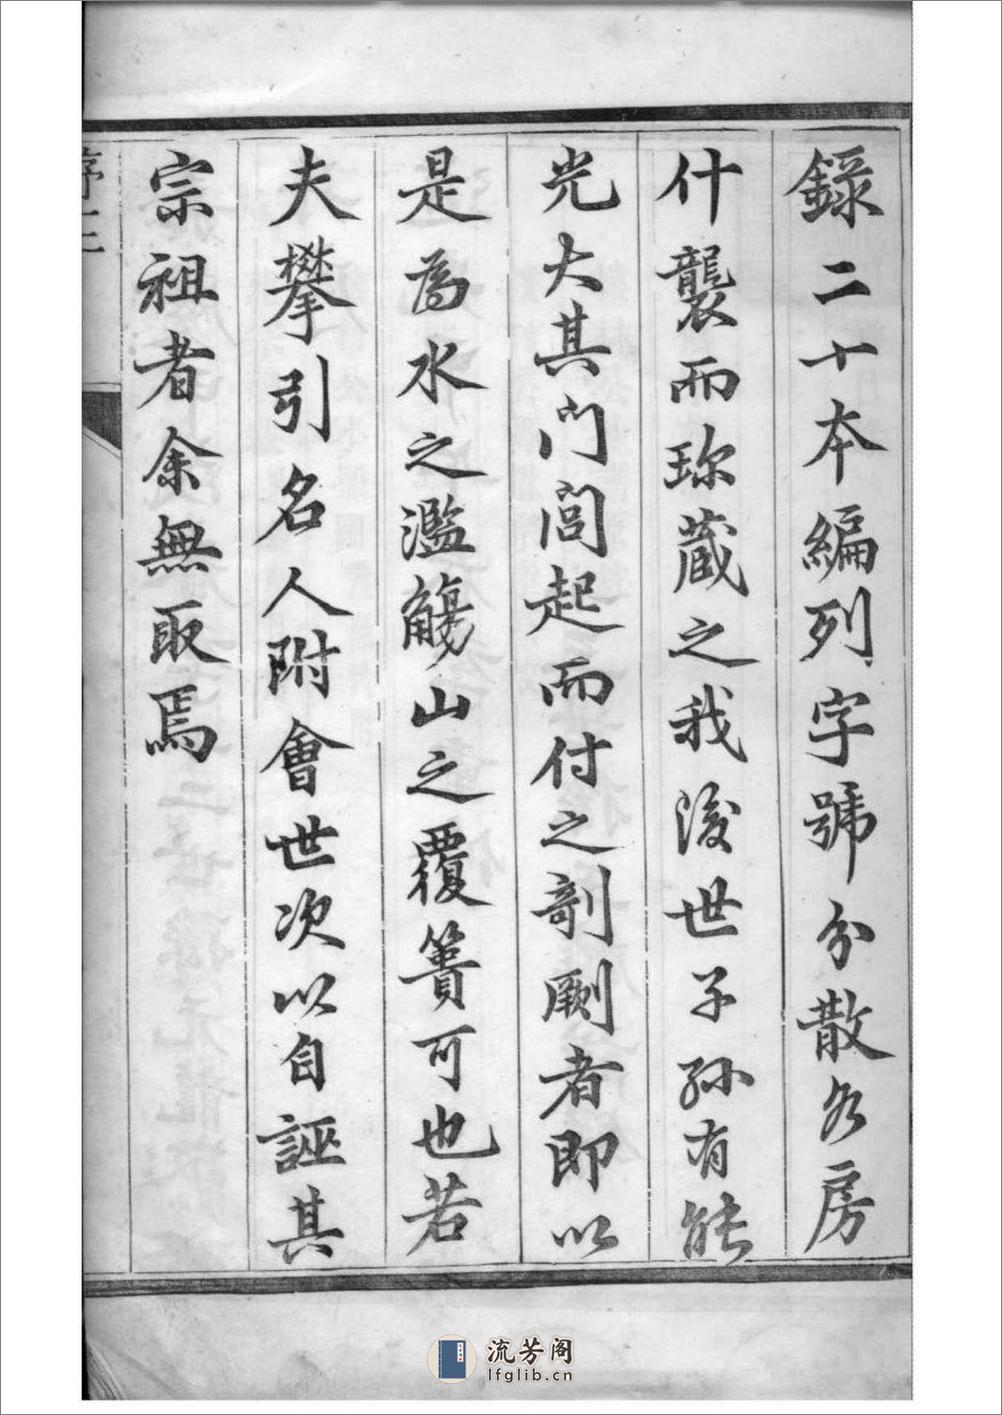 錄二十本編列字號分散各房
什襲而珎藏之我後世子孫有能
光大其門閭起而付之剞劂者即以
是為水之濫觴山之覆簣可也若
夫攀引名人附會世次以自誣其
宗祖者余無取焉
序三
流芳阁
lfglib.cn